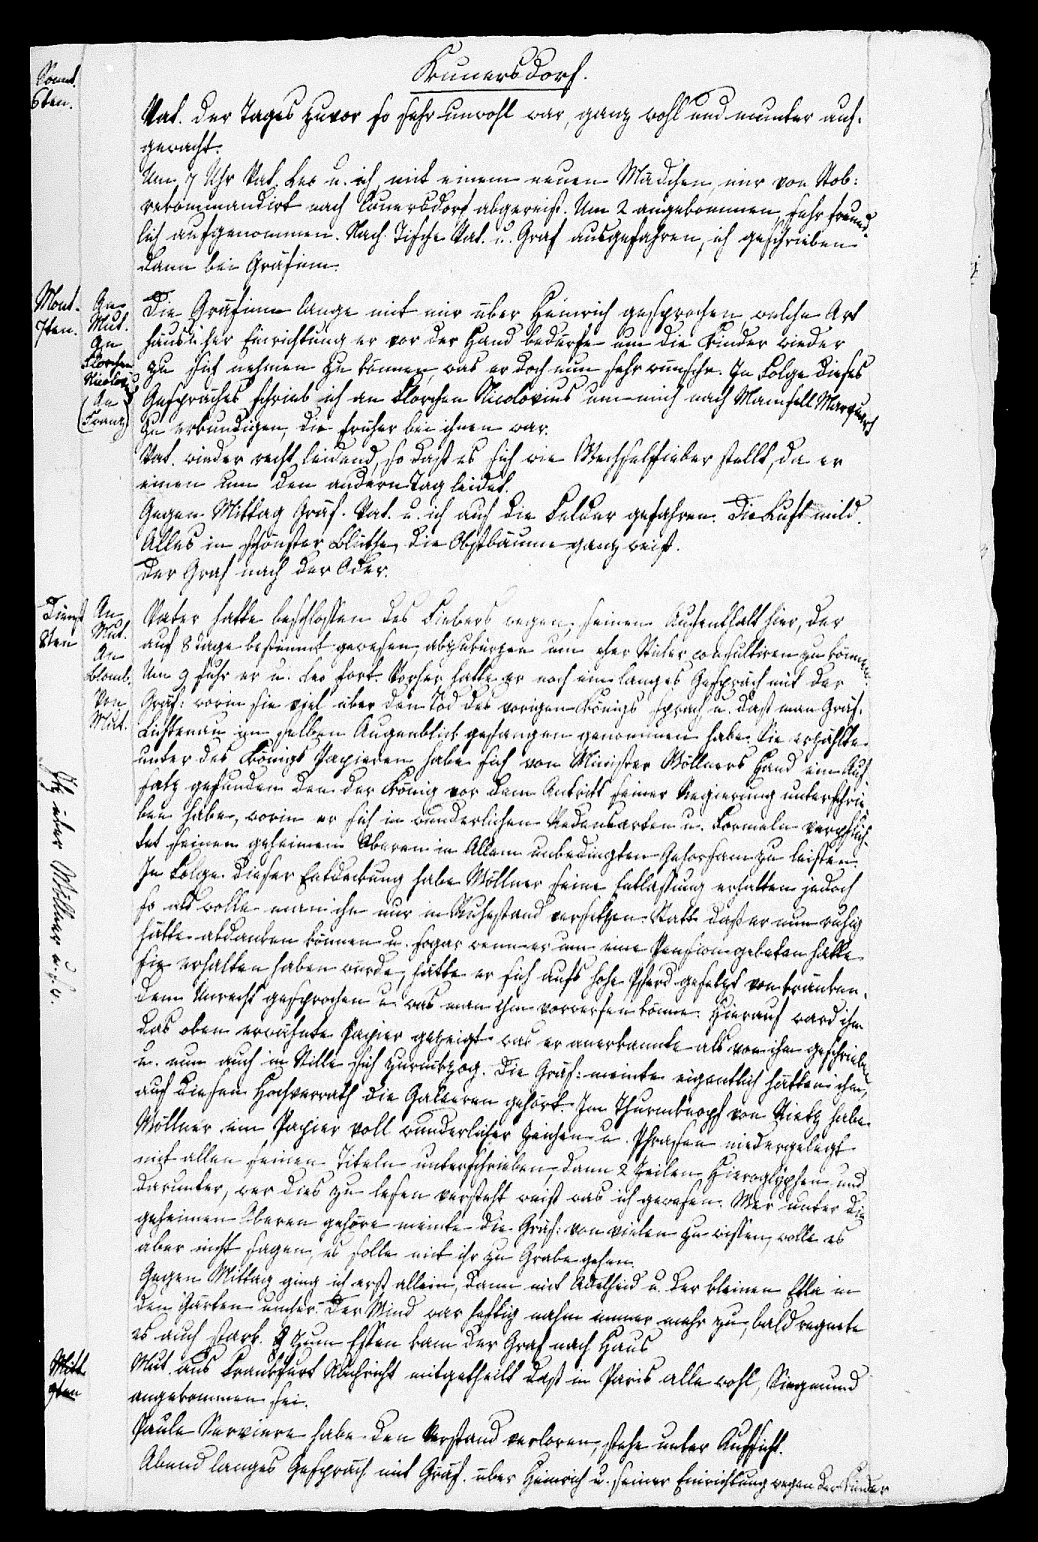 Kunersdorf.
Sonnt.
6ten.
Vat. der Tages zuvor so sehr unwohl war, ganz wohl und munter auf-
gewacht.
Um 7 Uhr Vat. Leo u. ich mit einem neuen Mädchen mir von Nob:
rekommandirt nach Cunersdorf abgereist. Um 2 angekommen sehr freund-
lich aufgenommen. Nach Tische Vat. u. Graf ausgefahren, ich geschrieben
dann bei Gräfinn.
Mont.
7ten.
An
Mut.
An
Florchen
Nicolovius
An
(Franz)
Die Gräfinn lange mit mir über Heinrich gesprochen, welche Art
häuslicher Einrichtung er vor der Hand bedürfe um die Kinder wieder
zu sich nehmen zu können, was er doch nun sehr wünsche. In Folge dieses
Gespräches schrieb ich an Florchen Nicolovius um mich nach Mamsell
zu erkundigen, die früher bei ihnen war.
Vat. wieder recht leidend, so daß es sich wie Wechselfieber stellt, da er
einen um den andern Tag leidet.
Gegen Mittag Gräf. Vat. u. ich auf die Felder gefahren. Die Luft mild.
Alles in schönster Blüthe, die Obstbäume ganz weiß.
Der Graf nach der Oder.
Dienst
8ten
An
Mut.
An
Von
Mut.
Vater hatte beschlossen des Fiebers wegen, seinen Aufenthalt hier, der
auf 8 Tage bestimmt gewesen, abzukürzen um eher consultiren zu können.
Um 9 fuhr er u. Leo fort. Vorher hatte er noch ein langes Gespräch mit der
Gräf: worin sie viel über den Tod des vorigen Königs sprach u. daß man Gräf.
Lichtenau im selben Augenblick gefangen genommen habe. Sie erzählte
unter des Königs Papieren habe sich von Minister Wöllners Hand ein Auf-
satz gefunden den der König vor dem Antritt seiner Regierung unterschrie-
ben habe, worin er sich in wunderlichen Redensarten u. Formeln verpflich-
tet seinen geheimen Oberen in Allem unbedingten Gehorsam zu leisten.
In Folge dieser Entdeckung habe Wöllner seine Entlassung erhalten jedoch
so als wolle man ihn nur in Ruhestand versetzen. Statt daß er nun ruhig
hätte abdanken können u. sogar wenn er um eine Pension gebeten hätte
sie erhalten haben würde, hätte er sich aufs hohe Pferd gesetzt von kränken-
dem Unrecht gesprochen u. was man ihm vorwerfen könne. Hierauf ward ihm
das oben erwähnte Papier gezeigt was er anerkannte als von ihm geschrieben
u. nun auch in Stille sich zurückzog. Die Gräf: meinte eigentlich hätten ihm,
auf diesen Hochverrath die Galeeren gehört. Im Thurmknopf von Rietz habe
Wöllner ein Papier voll wunderlicher Zeichen u. Phrasen niedergelegt
mit allen seinen Titeln unterschrieben, dann 2 Zeilen Hieroglyphen und
darunter, wer dies zu lesen versteht weiß was ich gewesen. Wer unter die
geheimen Oberen gehöre meinte die Gräf: von vielen zu wissen, wolle es
aber nicht sagen, es solle mit ihr zu Grabe gehen.
Gegen Mittag ging ich erst allein, dann mit Adelheid u. der kleinen Ella in
den Gärten umher. Der Wind war heftig nahm immer mehr zu, bald regnete
es auch stark. Zum Essen kam der Graf nach Haus
über Wöllner u. s. w.
Mitt
9ten
Mut. aus Frankfurt Nachricht mitgetheilt daß in Paris alle wohl, Siegmund
angekommen sei.
Paule Serviere habe den Verstand verloren, stehe unter Aufsicht.
Abend langes Gespräch mit Gräf. über Heinrich u. seiner Einrichtung wegen der Kinder